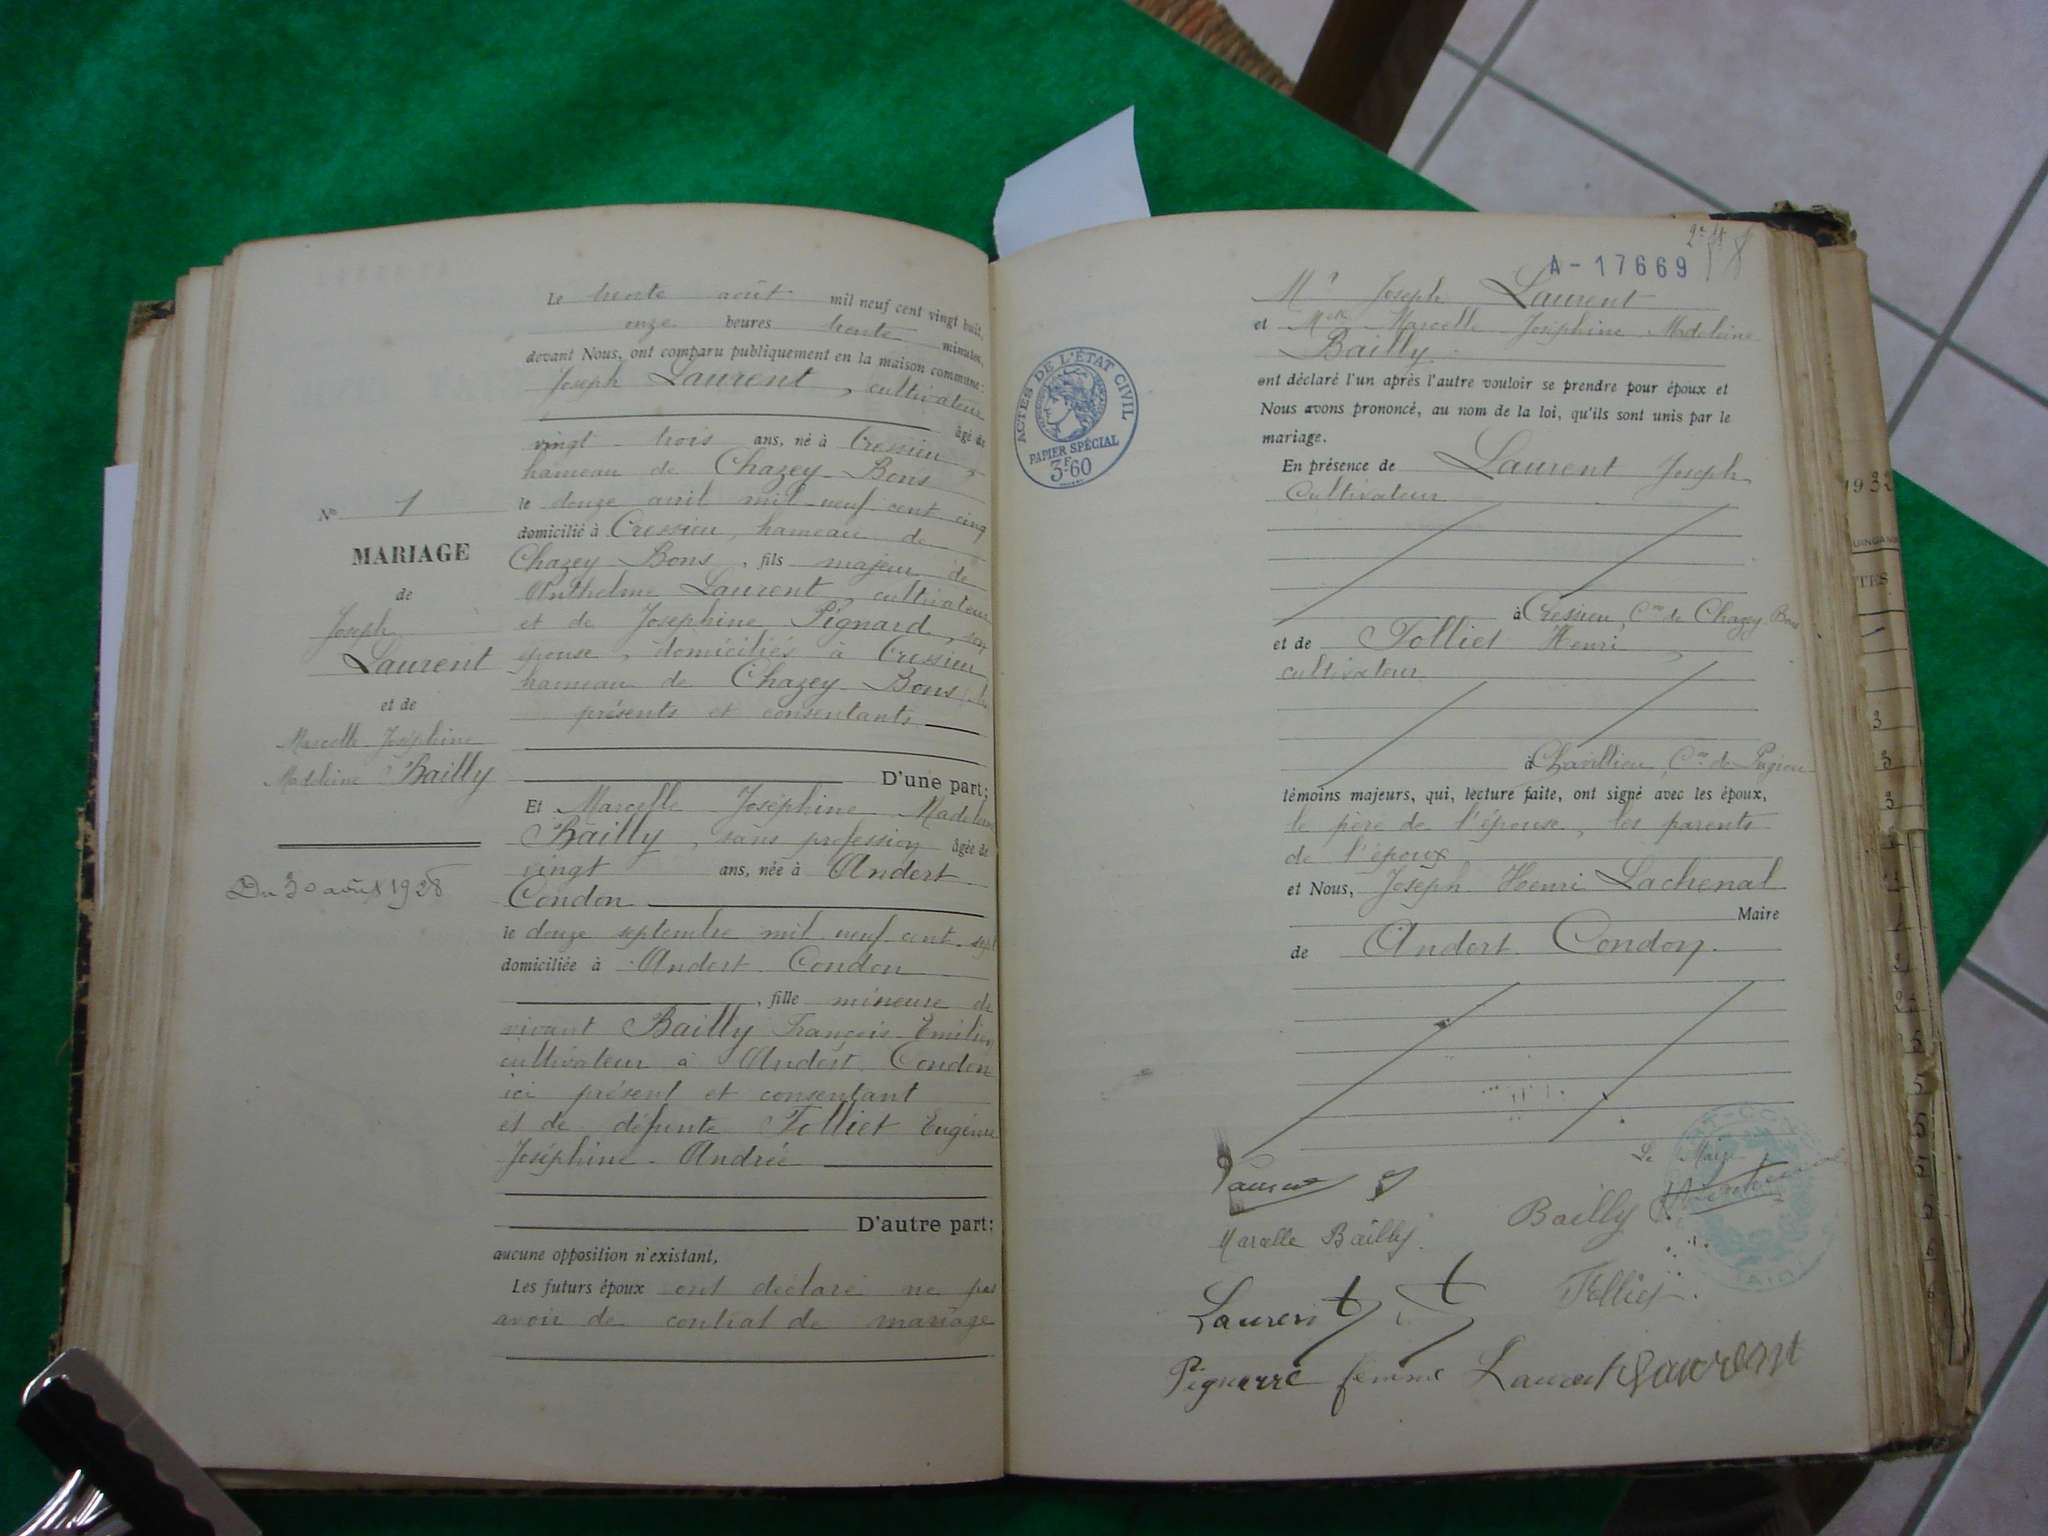 Nº 1
MARIAGE
de
Joseph
Laurent
et de
Marcelle Joséphine
Madeleine Bailly
Du 30 août 1928
Le trente août mil neuf cent vingt huit,
onze heures trente minutes,
devant Nous, ont comparu publiquement en la maison commune:
Joseph Laurent, cultivateur
âgé de
vingt-trois ans, né à Cressieu,
hameau de Chazey-Bons
le douze avril mil neuf cent cinq
domicilié à Cressieu, hameau de
Chazey Bons, fils majeur de
Anthelme Laurent, cultivateur
et de Josephine Pignard, son
épouse, domiciliés à Cressieu
hameau de Chazey-Bons,
présents et consentants
D'une part;
Et Marcelle Joséphine Madeleine
Bailly, sans profession âgée de
vingt ans, née à Andert
Condon
le douze septembre mil neuf cent sept
domiciliée à Andert Condon
, fille mineure de
vivant Bailly François Emilien
cultivateur à Andert Condon
ici présent et consentant
et de défunte Folliet Eugénie
Joséphine Andrée
D'autre part:
aucune opposition n'existant,
Les futurs époux ont déclaré ne pas
avoir de contrat de mariage
ACTES DE L'ÉTAT CIVIL
PAPIER SPÉCIAL
3F60
A-17669
Mr Joseph Laurent
et Melle Marcelle Joséphine Madeleine
Bailly
ont déclaré l'un après l'autre vouloir se prendre pour époux et
Nous avons prononcé, au nom de la loi, qu'ils sont unis par le
mariage.
En présence de Laurent Joseph
Cultivateur
à Cressieu, Cne de Chazey Bons
et de Folliet Henri
cultivateur
à Chavillieu, Cne de Pugieu
témoins majeurs, qui, lecture faite, ont signé avec les époux,
le père de l'épouse, les parents
de l'époux
et Nous, Joseph Henri Lachenal
Maire
de Andert Condon.
Le Maire
Laurent J
Marcelle Bailly
Bailly
Laurent
Folliet
Pignerre femme Laurent Laurent
1932